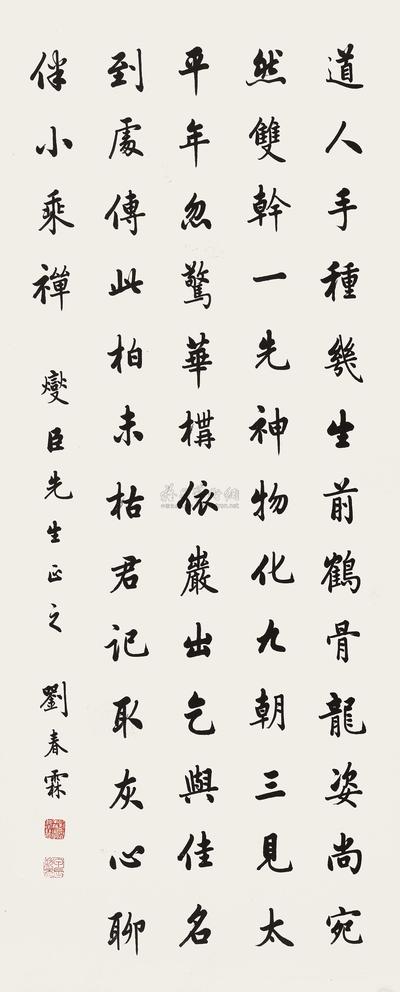 道人手種幾生前鶴骨龍姿尚宛
然雙幹一先神物化九朝三見太
平年忽驚華構依巖出乞與佳名
到處傳此柏未枯君記取灰心聊
伴小乘禪
燮臣先生正之
劉春霖